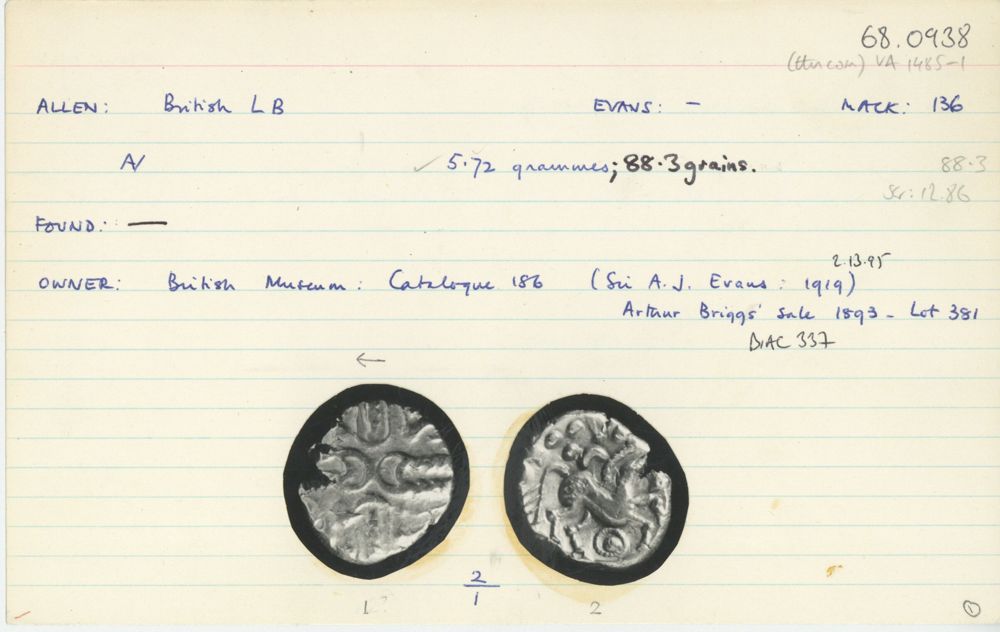 68.0938
VA 1485-1
ALLEN: British LB EVANS: - MACK: 136
5.72 grammes; 88.3 grains. 88.3
Scr: 12.86
FOUND: —
OWNER: British Museum: Catalogue 186 (Sir A.J. Evans: 1919) 2.13.95
Arthur Briggs' sale 1893 - Lot 381
BIAC 337
←
2
1
1 2 1